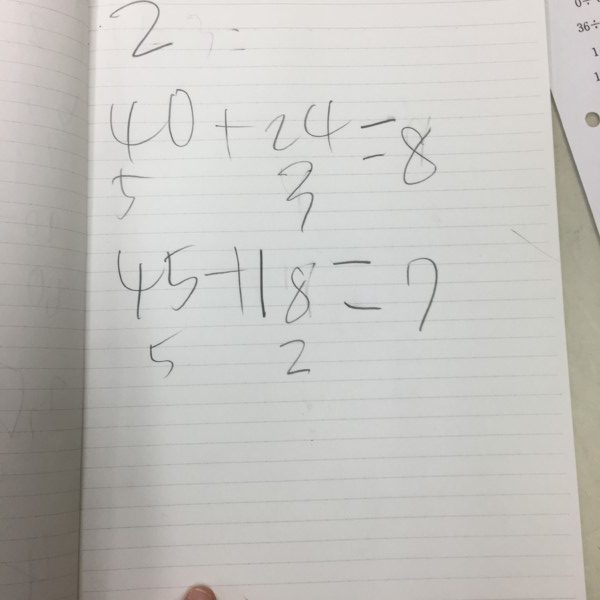 2 3 =
40+24=8
5 3
45+18=7
5 2
0÷
36÷
1
1